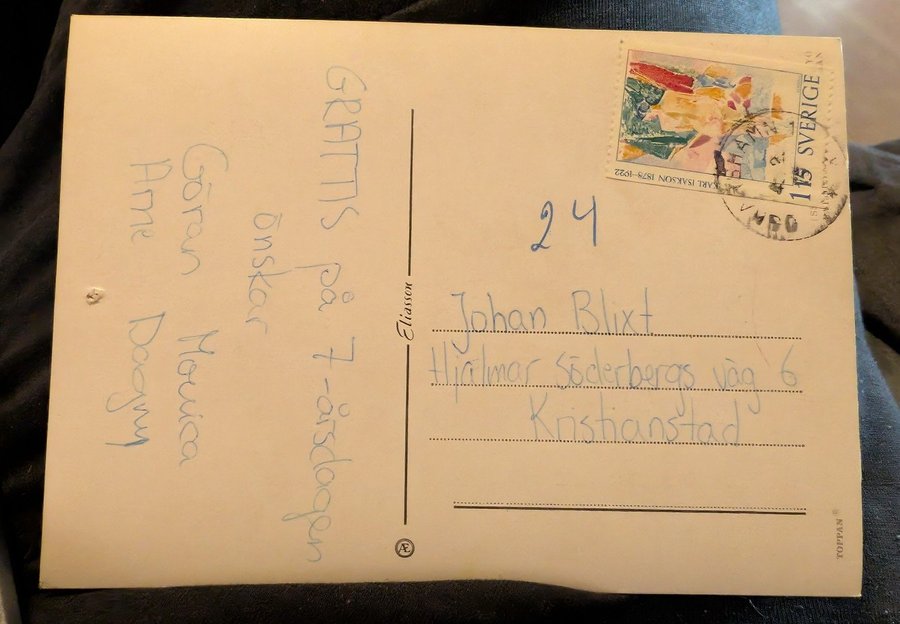 GRATTIS på 7-årsdagen
önskar
Göran Monica
Arne Dagny
Eliasson
24
Johan Blixt
Hjalmar Söderbergs väg 6
Kristianstad
KARL ISAKSON 1878-1922
115 SVERIGE
TOPPAN